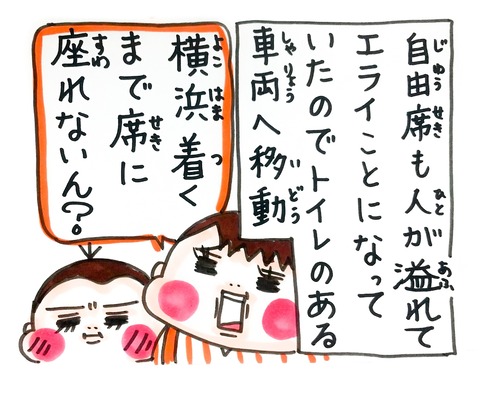 自由席も人が溢れて
エライことになって
いたのでトイレのある
車両へ移動
横浜着く
まで席に
座れないん?。